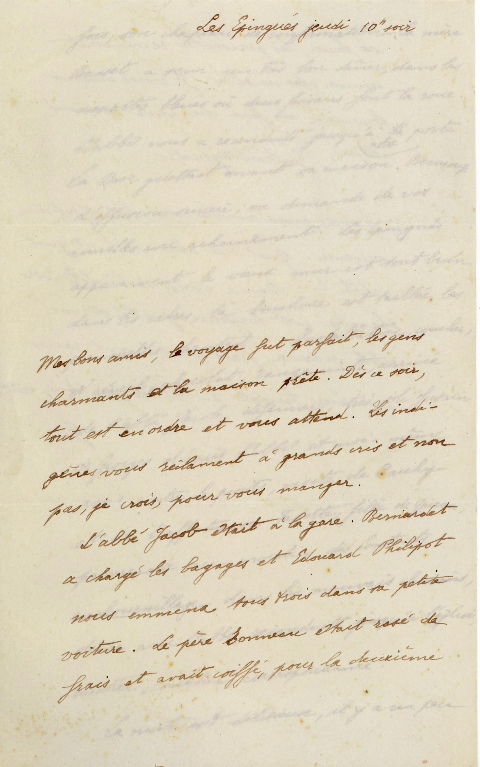 Les Epingués jeudi 10h soir
Mes bons amis, le voyage fut parfait, les gens
charmants et la maison prête. Dès ce soir,
tout est en ordre et vous attend. Les indi-
gènes vous réclament à grands cris et non
pas, je crois, pour vous manger.
L'abbé Jacob était à la gare. Bernardet
a chargé les bagages et Edouard Philipot
nous emmena tous trois dans sa petite
voiture. Le père Bonneau était rasé de
frais et avait coiffé, pour la deuxième